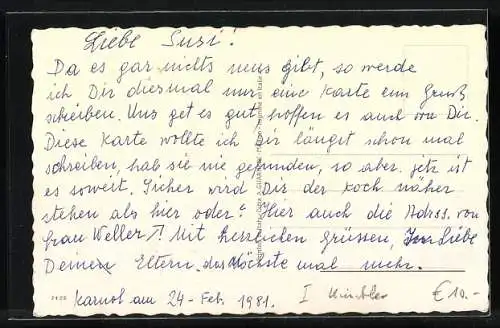 Liebe Susi!
Da es gar nichts neus gibt, so werde
ich Dir diesmal nur eine Karte zum Gruß
schreiben. Uns get es gut, hoffen es auch von Dir.
Diese Karte wollte ich Dir längst schon mal
schreiben, hab sie nie gefunden, so aber jetz ist
es soweit. Sicher wird Dir der Koch näher
stehen als hier oder? Hier auch die Adrss. von
frau Weller. Mit herzlichen Grüssen, Liebe
Deine Eltern, das Nöchste mal mehr.
Karnol am 24- Feb. 1981.
€ 10.-